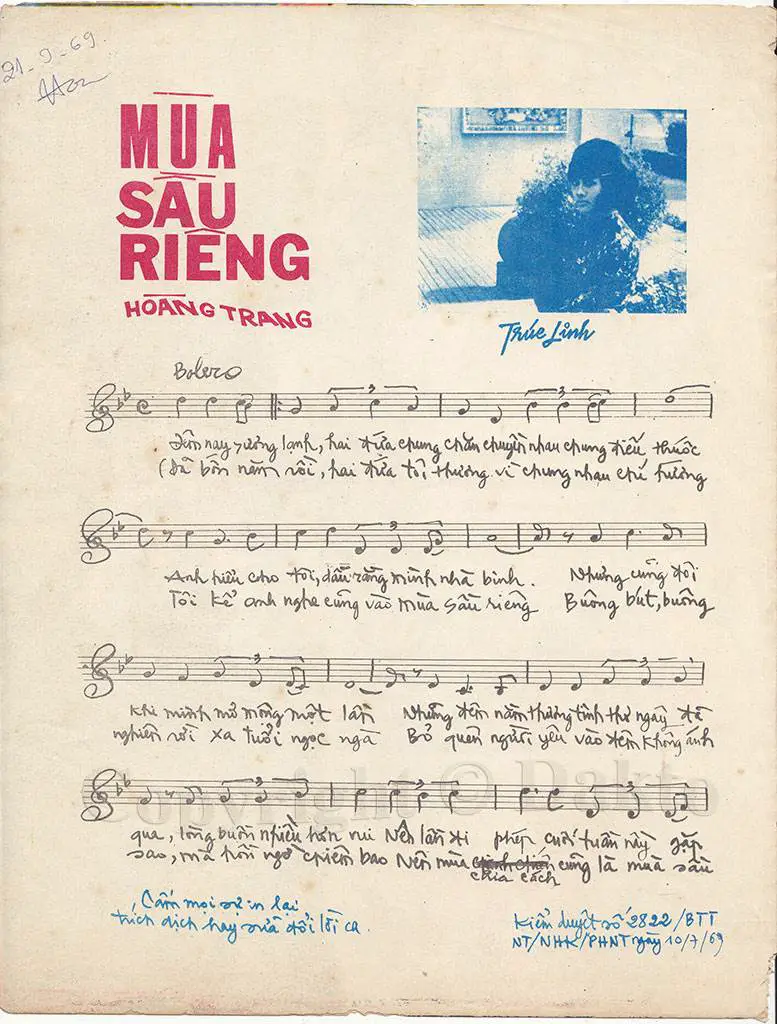 21-9-69.
MÙA
SẦU
RIÊNG
HOÀNG TRANG
Trúc Linh
Bolero
Đêm nay sương lạnh, hai đứa chung chăn chuyền nhau chung điếu thuốc
(Đã bốn năm rồi, hai đứa tôi thương vì chung nhau chí hướng
Anh hiểu cho tôi, dẫu rằng mình nhà binh. Nhưng cũng đôi
Tôi kể anh nghe cũng vào mùa sầu riêng Buông bút, buông
khi mình mơ mộng một lần Những đêm nằm thương tình thư ngây đã
nghiên rồi xa tuổi ngọc ngà Bỏ quên người yêu vào đêm không ánh
qua, lòng buồn nhiều hơn vui Nên lần đi phép cuối tuần này gặp
sao, mà hồn ngỡ chiêm bao Nên mùa chia cách cũng là mùa sầu
Copyright © Dakto
Cấm mọi sự in lại
trích dịch hay sửa đổi lời ca.
Kiểm duyệt số 2822/BTT
NT/NHK/PHNT ngày 10/7/69